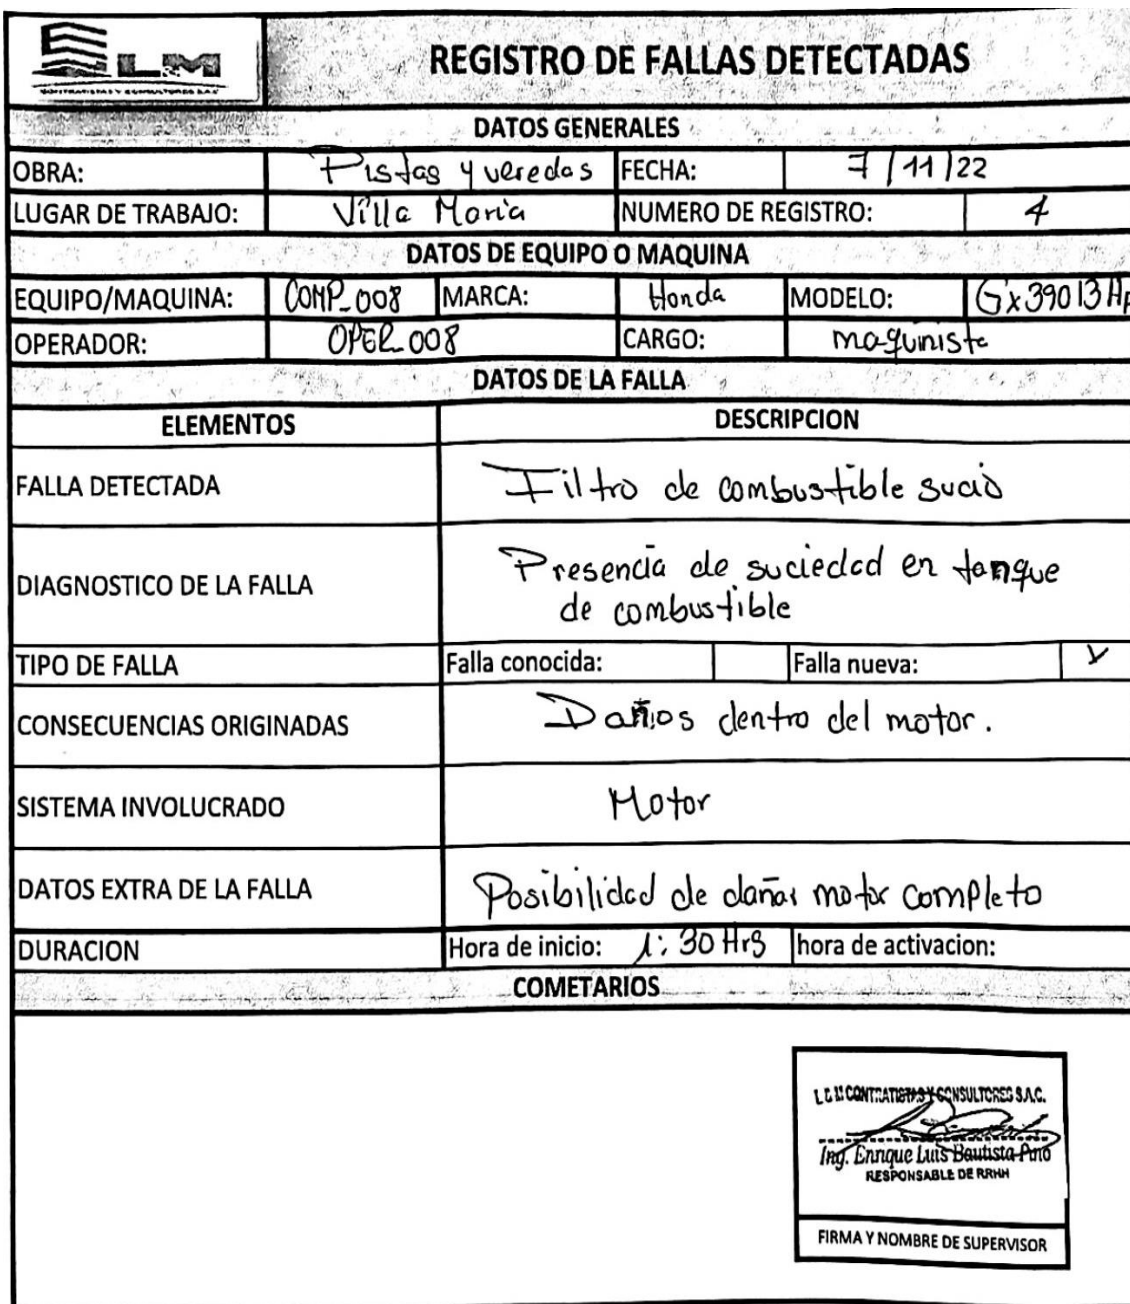 LM
CONTRATISTAS Y CONSULTORES S.A.C
REGISTRO DE FALLAS DETECTADAS
DATOS GENERALES
OBRA: Pistas y veredas FECHA: 7/11/22
LUGAR DE TRABAJO: Villa Maria NUMERO DE REGISTRO: 4
DATOS DE EQUIPO O MAQUINA
EQUIPO/MAQUINA: COMP_008 MARCA: Honda MODELO: Gx390 13 Hp
OPERADOR: OPER_008 CARGO: maquinista
DATOS DE LA FALLA
ELEMENTOS DESCRIPCION
FALLA DETECTADA Filtro de combustible sucio
DIAGNOSTICO DE LA FALLA Presencia de suciedad en tanque
de combustible
TIPO DE FALLA Falla conocida: Falla nueva: X
CONSECUENCIAS ORIGINADAS Daños dentro del motor.
SISTEMA INVOLUCRADO Motor
DATOS EXTRA DE LA FALLA Posibilidad de dañar motor completo
DURACION Hora de inicio: 1:30 Hrs hora de activacion:
COMETARIOS
CONTRATISTAS Y CONSULTORES S.A.C.
Ing. Enrique Luis Bautista Pino
RESPONSABLE DE RRHH
FIRMA Y NOMBRE DE SUPERVISOR